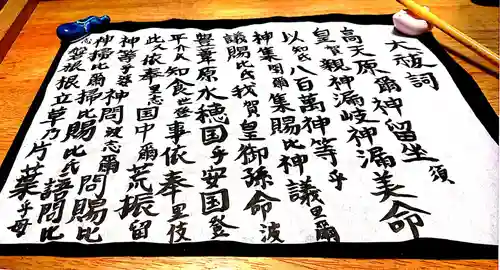 大祓詞
高天原爾神留坐須
皇賀親神漏岐神漏美命
以知氐八百萬神等乎
神集閉爾集賜比神議里爾
議賜比氐我賀皇御孫命波
豊葦原水穂国乎安国登
平介久知食世登事依奉里伎
此久依奉里志国中爾荒振留
神等乎婆神問波志爾問賜比
神掃比爾掃賜比氐語問比
志磐根樹根立草乃片葉乎母